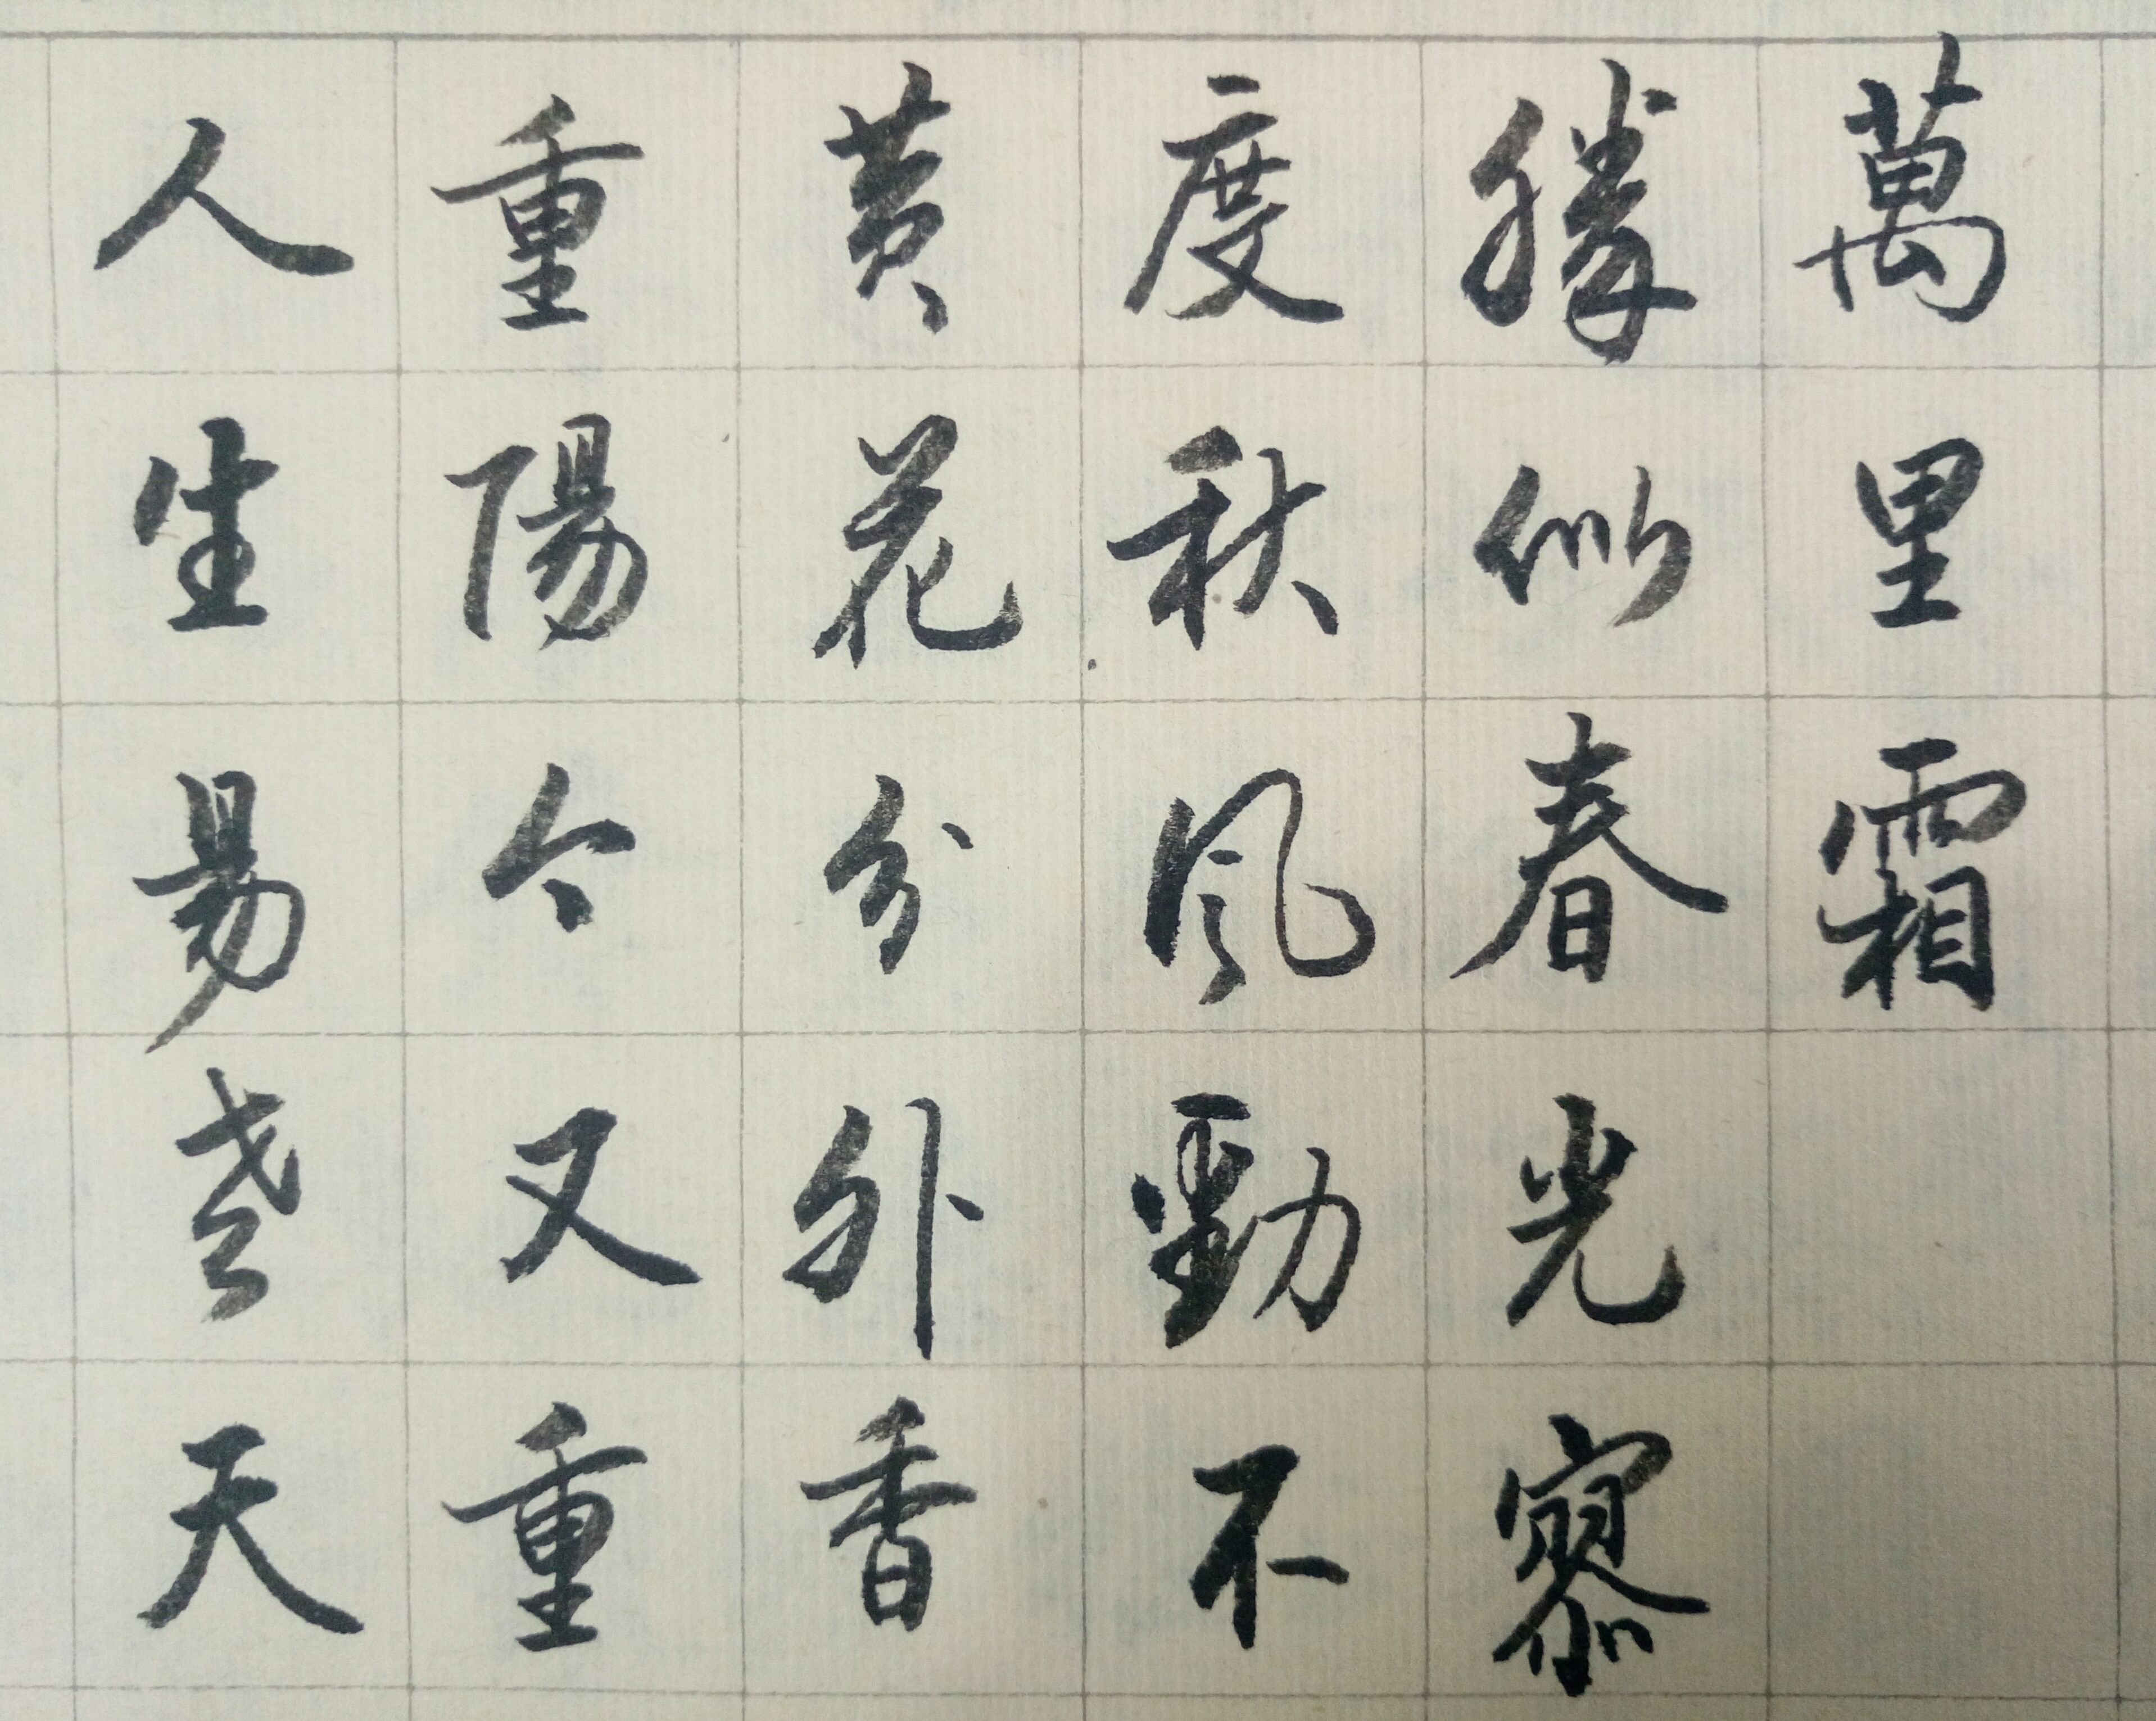 人生易老天
重陽今又重
黄花分外香
度秋風勁不
勝似春光寥
萬里霜